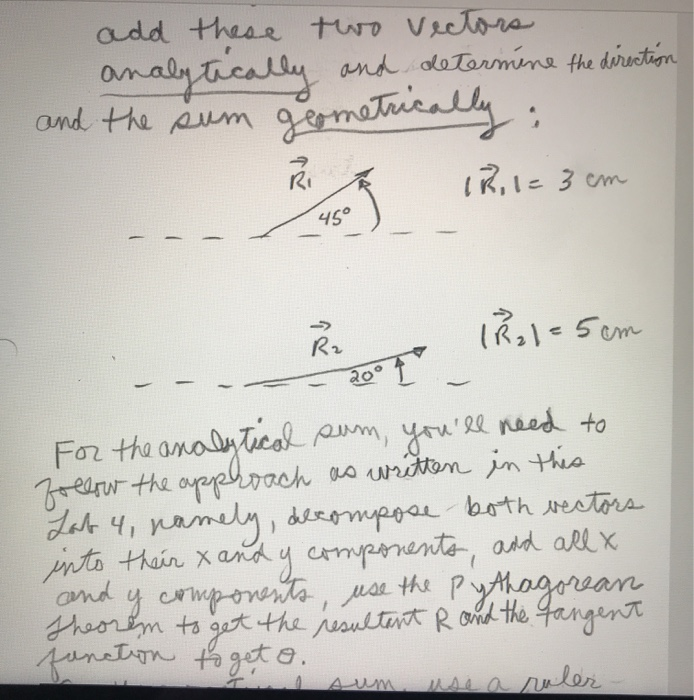 add these two vectors
analytically and determine the direction
and the sum geometrically :
R⃗₁ |R⃗₁| = 3 cm
45°
R⃗₂ |R⃗₂| = 5 cm
20°
For the analytical sum, you'll need to
follow the approach as written in this
Lab 4, namely, decompose both vectors
into their x and y components, add all x
and y components, use the Pythagorean
theorem to get the resultant R and the tangent
function to get θ.
sum, use a ruler